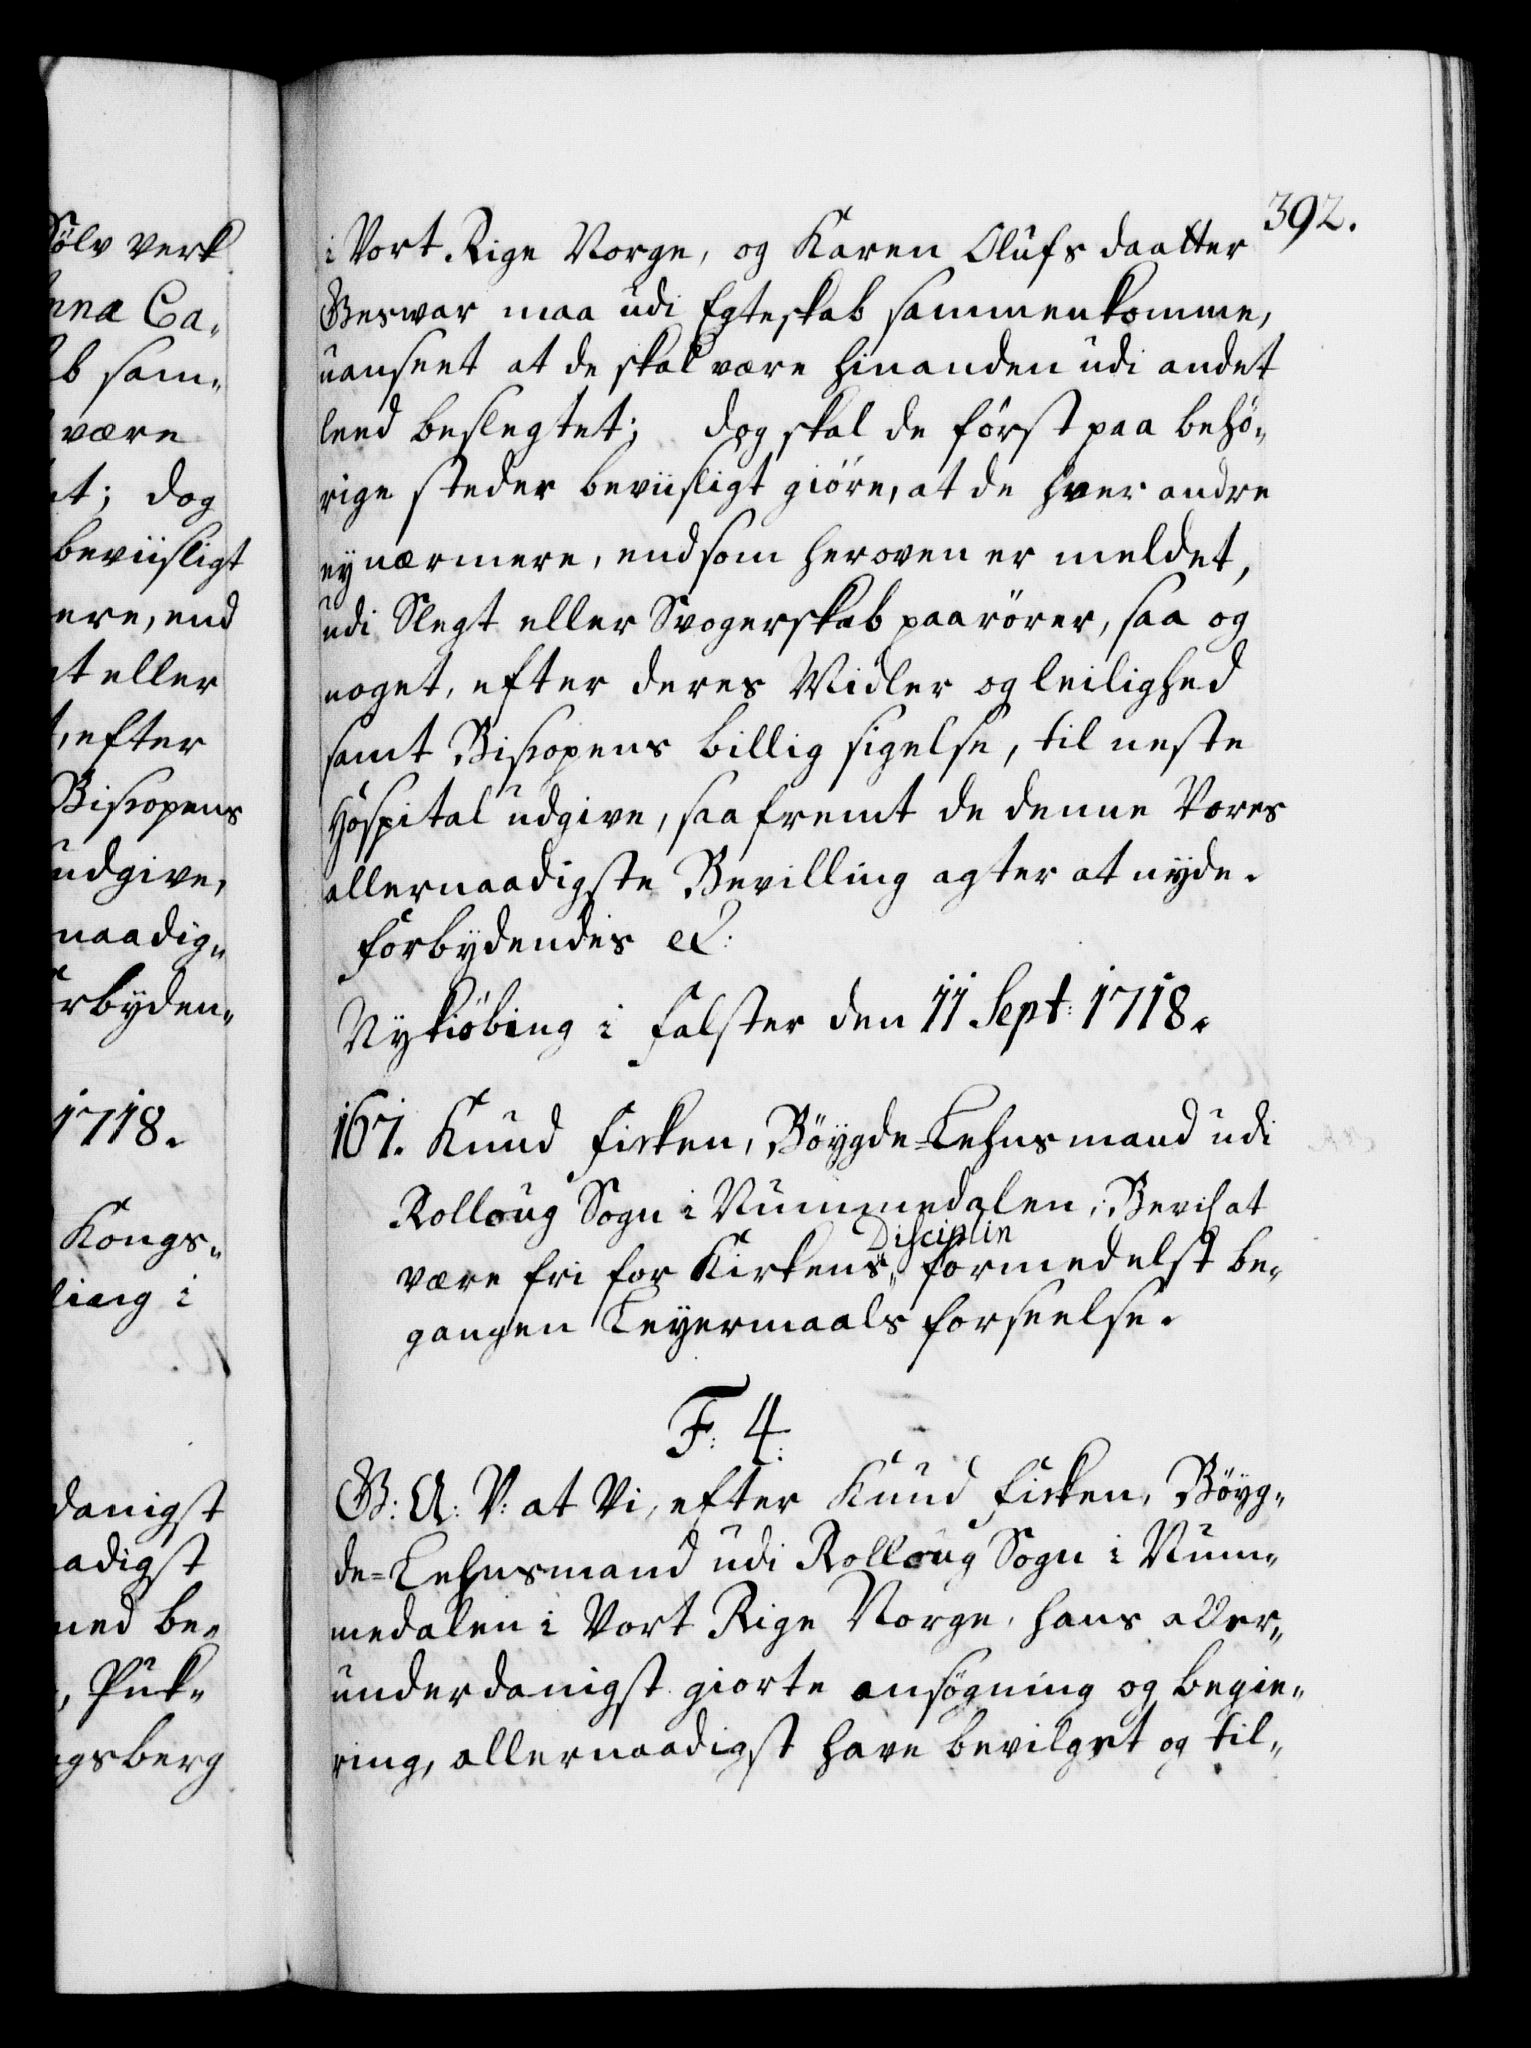 Sölv verk
nna Ca„
b sam„
være
t; dog
beviisligt
ere, end
t eller
, efter
Biscopens
udgive,
naadig„
rbyden„
1718.
Kongs„
ing i
danigst
adigst
ned be„
, Puk„
gsberg
392.
i Vort Rige Norge, og Karen Olufs daatter
Gieswar maa udi Egteskab sammenkomme,
uanseet at de skal være hinanden udi andet
leed beslegtet; dog skal de först paa behö„
rige steder beviisligt giöre, at de hver andre
ey nærmere, end som heroven er meldet,
udi Slegt eller Svogerskab paarörer, saa og
noget, efter deres Midler og leilighed
samt Biscopens billig sigelse, til neste
Hospital udgive, saafremt de denne Vores
allernaadigste Bevilling agter at nyde.
Forbydendes etc:
Nykiöbing i Falster den 11 Sept: 1718.
167. Knud Fisken, Böygde-Lehnsmand udi
Rolloug Sogn i Nummedalen, Bevil: at
være fri for Kirkens Disciplin formedelst be„
gangen Leyermaals forseelse.
F: 4:
G: A: V: at Vi, efter Knud Fisken, Böyg„
de-Lehnsmand udi Rolloug Sogn i Num„
medalen i Vort Rige Norge, hans aller„
underdanigst giorte ansögning og begie„
ring, allernaadigst have bevilget og til„